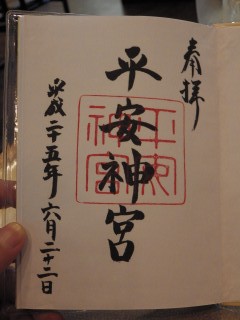 奉拝
平安神宮
平安神宮
平成二十五年六月二十二日